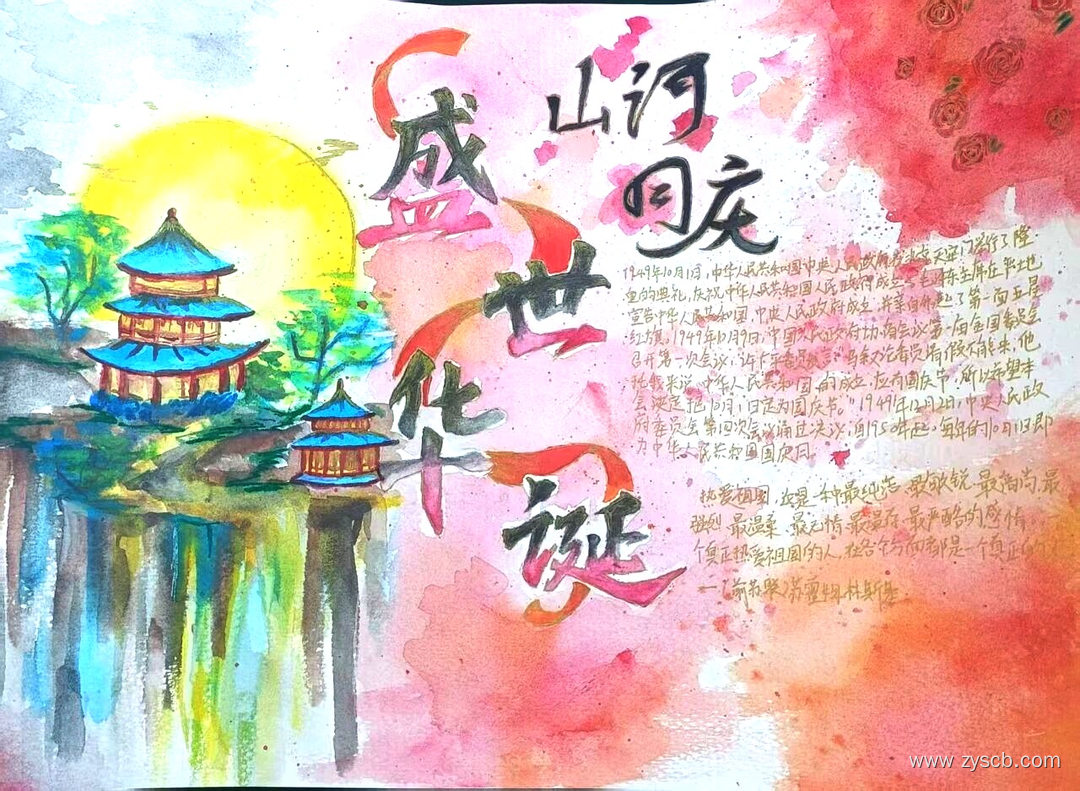 盛世华诞
山河
同庆
1949年10月1日,中华人民共和国中央人民政府成立在天安门举行了隆
重的典礼,庆祝中华人民共和国人民政府成立。毛泽东主席在此地
宣告中华人民共和国,中央人民政府成立,并亲自升起了第一面五星
红旗。1949年10月9日,中国人民政府协商会议第一届全国委员会
召开第一次会议,许广平委员发言:马叙伦委员请假不能来,他
托我来说,中华人民共和国的成立,应有国庆节,所以希望本
会决定把10月1日定为国庆节。"1949年12月2日,中央人民政
府委员会第四次会议通过决议,自1950年起,每年的10月1日即
为中华人民共和国国庆日。
热爱祖国,这是一种最纯洁、最敏锐、最高尚、最
强烈、最温柔、最无情、最温存、最严酷的感情
个真正热爱祖国的人,在各个方面都是一个真正的
www.zyscb.com